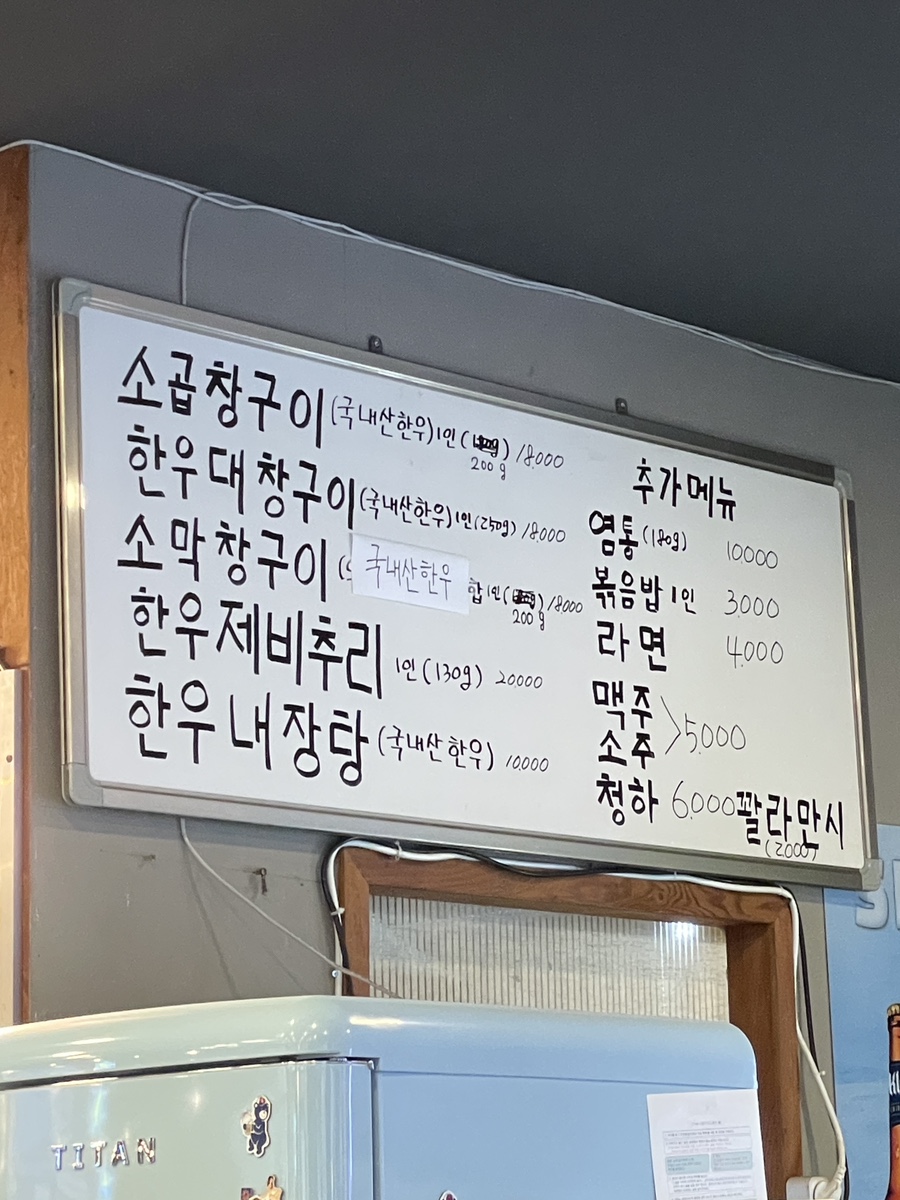 소곱창구이(국내산한우)1인( ) /18.000
200g
한우대창구이(국내산한우)1인(250g) /18.000
소막창구이( 국내산한우 합1인( ) /18000
200g
한우제비추리 1인(130g) 20.000
한우내장탕(국내산한우) 10.000
추가메뉴
염통(180g) 10.000
볶음밥 1인 3.000
라면 4.000
맥주
소주 >5.000
청하 6.000
꽐라만시
(2000)
TITAN